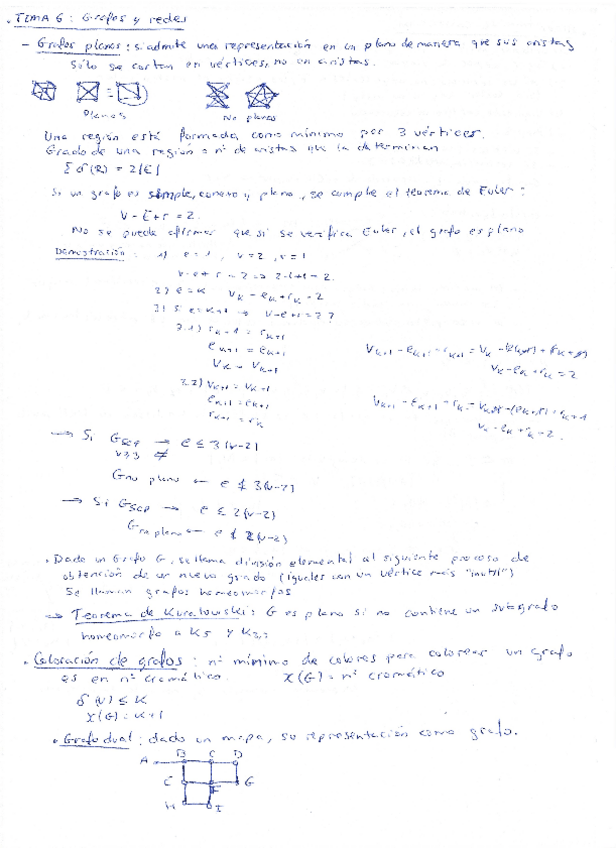 . TEMA 6 : Grafos y redes
- Grafos planos : si admite una representación en un plano de manera que sus aristas
sólo se cortan en vértices, no en aristas.
Planos
No planos
Una región está formada como mínimo por 3 vértices.
Grado de una región = nº de aristas que la determinan
Σ δ(R) = 2|E|
Si un grafo es simple, conexo y plano, se cumple el teorema de Euler :
V - E + r = 2.
No se puede afirmar que si se verifica Euler, el grafo es plano
Demostración : 1) e = 1, v = 2, r = 1
v - e + r = 2 => 2-1+1 = 2.
2) e = K  V_K - e_K + r_K = 2
3) Si e = K+1 → v - e + r = 2 ?
3.1)
3.2)
V_K - e_K + r_K = 2
V_K - e_K + r_K = 2.
→ Si G_SCP → e ≤ 3(v-2)
v≥3
G no plano ← e ≰ 3(v-2)
→ Si G_SCP → e ≤ 2(v-2)
G no plano ← e ≰ 2(v-2)
• Dado un Grafo G, se llama división elemental al siguiente proceso de
obtención de un nuevo grado (iguales con un vértice más "inútil")
Se llaman grafos homeomorfos
→ Teorema de Kuratowski : G es plano si no contiene un subgrafo
homeomorfo a K5 y K3,3
• Coloración de grafos : nº mínimo de colores para colorear un grafo
es en nº cromático. X(G) = nº cromático
δ(V) ≤ K
X(G) = K+1
• Grafo dual : dado un mapa, su representación como grafo.
A B C D
E F G
H I